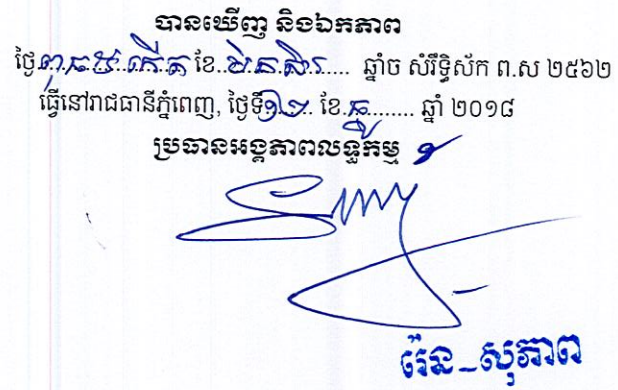 បានឃើញ និងឯកភាព
ថ្ងៃ ពុធ ៥ កើត ខែ មិគសិរ ឆ្នាំច សំរឹទ្ធិស័ក ព.ស ២៥៦២
ធ្វើនៅរាជធានីភ្នំពេញ, ថ្ងៃទី ១២ ខែ ធ្នូ ឆ្នាំ ២០១៨
ប្រធានអង្គភាពលទ្ធកម្ម
រ៉េន_សុភាព